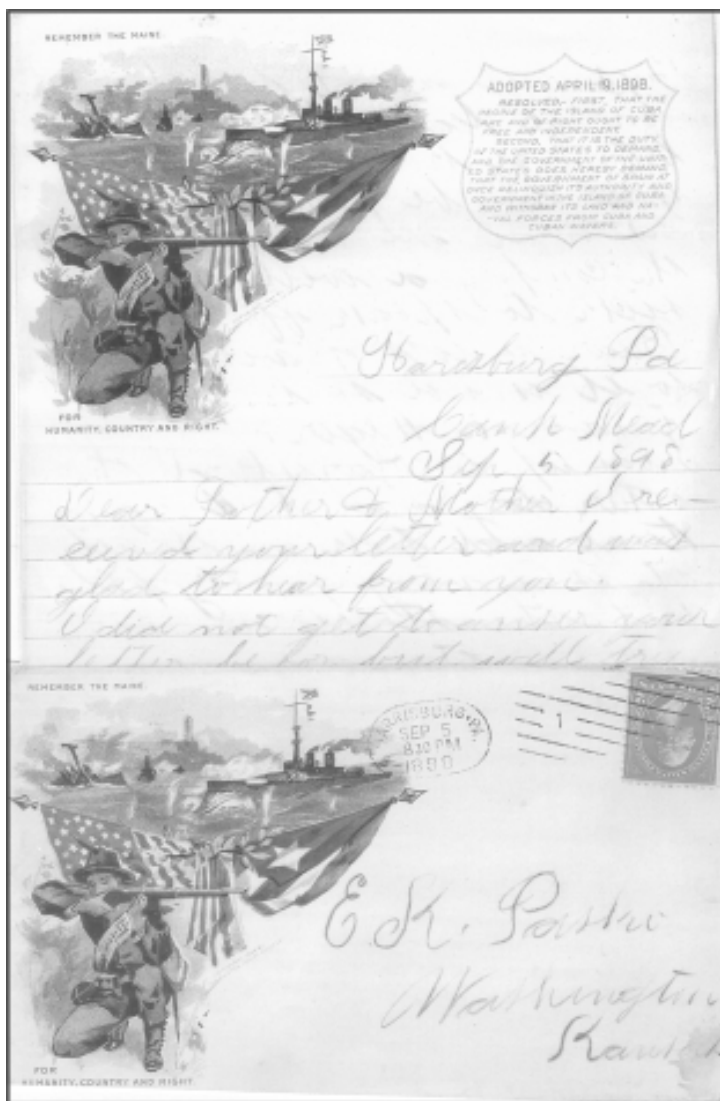 REMEMBER THE MAINE.
ADOPTED APRIL 19, 1898.
RESOLVED:- FIRST, THAT THE
PEOPLE OF THE ISLAND OF CUBA
ARE AND OF RIGHT OUGHT TO BE
FREE AND INDEPENDENT
SECOND, THAT IT IS THE DUTY
OF THE UNITED STATES TO DEMAND,
AND THE GOVERNMENT OF THE UNIT-
ED STATES DOES HEREBY DEMAND,
THAT THE GOVERNMENT OF SPAIN AT
ONCE RELINQUISH ITS AUTHORITY AND
GOVERNMENT IN THE ISLAND OF CUBA,
AND WITHDRAW ITS LAND AND NA-
VAL FORCES FROM CUBA AND
CUBAN WATERS.
FOR
HUMANITY, COUNTRY AND RIGHT.
Harisburg Pa
Camk Mead
Sep 5 1898
Dear Father & Mother I re-
ceived your letter and was
glad to hear from you
I did not get to anser your
letter befor but will try
REMEMBER THE MAINE.
HARRISBURG, PA.
SEP 5
8 30 PM
1898
1
E. K.
Washington
FOR
HUMANITY, COUNTRY AND RIGHT.